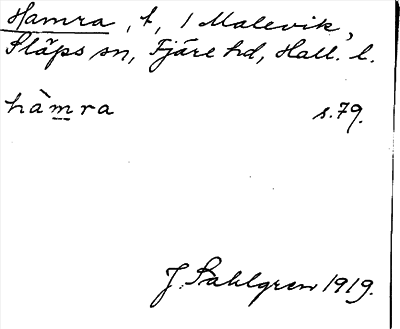 Hamra, t, i Malevik,
Släps sn, Fjäre hd, Hall. l.
hàmra s. 79.
J. Sahlgren 1919.